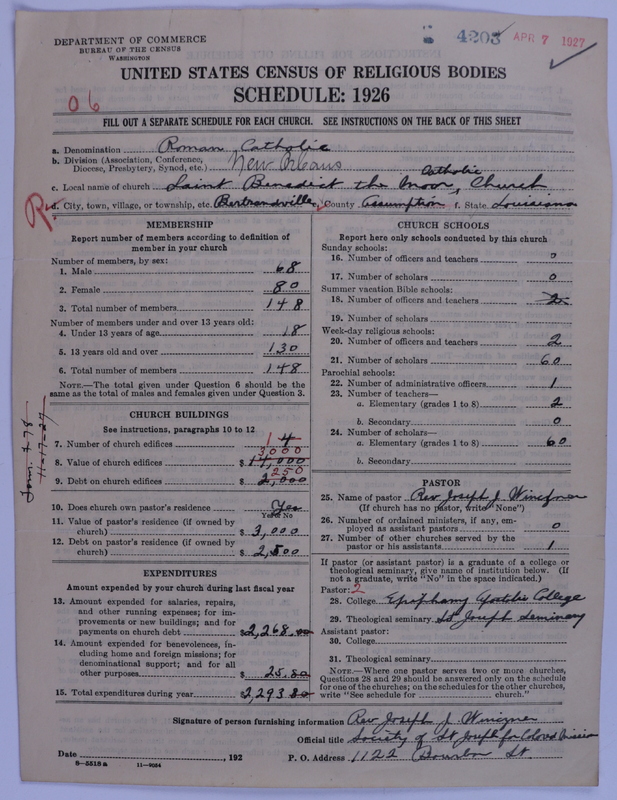 DEPARTMENT OF COMMERCE
BUREAU OF THE CENSUS
WASHINGTON
4203 APR 7 1927
UNITED STATES CENSUS OF RELIGIOUS BODIES
SCHEDULE: 1926
06
FILL OUT A SEPARATE SCHEDULE FOR EACH CHURCH. SEE INSTRUCTIONS ON THE BACK OF THIS SHEET
a. Denomination Roman Catholic
b. Division (Association, Conference, Diocese, Presbytery, Synod, etc.) New Orleans
c. Local name of church Saint Benedict the Moor, Catholic Church
R
d. City, town, village, or township, etc. Bertrandville e. County Assumption f. State Louisiana
MEMBERSHIP
Report number of members according to definition of
member in your church
Number of members, by sex:
1. Male 68
2. Female 80
3. Total number of members 148
Number of members under and over 13 years old:
4. Under 13 years of age 18
5. 13 years old and over 130
6. Total number of members 148
NOTE.—The total given under Question 6 should be the
same as the total of males and females given under Question 3.
CHURCH BUILDINGS
See instructions, paragraphs 10 to 12
7. Number of church edifices 1 4
3000
8. Value of church edifices $ 14,000
250
9. Debt on church edifices $ 2,000
10. Does church own pastor's residence Yes
Yes or No
11. Value of pastor's residence (if owned by
church) $ 3,000
12. Debt on pastor's residence (if owned by
church) $ 2,500
EXPENDITURES
Amount expended by your church during last fiscal year
13. Amount expended for salaries, repairs,
and other running expenses; for im-
provements or new buildings; and for
payments on church debt $ 2,268.00
14. Amount expended for benevolences, in-
cluding home and foreign missions; for
denominational support; and for all
other purposes $ 25.80
15. Total expenditures during year $ 2,293 80
CHURCH SCHOOLS
Report here only schools conducted by this church
Sunday schools:
16. Number of officers and teachers 0
17. Number of scholars 0
Summer vacation Bible schools:
18. Number of officers and teachers 2
19. Number of scholars
Week-day religious schools:
20. Number of officers and teachers 2
21. Number of scholars 60
Parochial schools:
22. Number of administrative officers 1
23. Number of teachers—
a. Elementary (grades 1 to 8) 2
b. Secondary 0
24. Number of scholars—
a. Elementary (grades 1 to 8) 60
b. Secondary
PASTOR
25. Name of pastor Rev Joseph J. Winczner
(If church has no pastor, write "None")
26. Number of ordained ministers, if any, em-
ployed as assistant pastors 0
27. Number of other churches served by the
pastor or his assistants 1
If pastor (or assistant pastor) is a graduate of a college or
theological seminary, give name of institution below. (If
not a graduate, write "No" in the space indicated.)
Pastor: 2
28. College Epiphany College
29. Theological seminary St Joseph Seminary
Assistant pastor:
30. College
31. Theological seminary
NOTE.—Where one pastor serves two or more churches,
Questions 28 and 29 should be answered only on the schedule
for one of the churches; on the schedules for the other churches,
write "See schedule for church."
Signature of person furnishing information Rev Joseph J. Winczner
Official title Society of St Joseph for Colored Mission
Date , 192 P. O. Address 1122 Bourbon St.
8—5518 a 11—9034